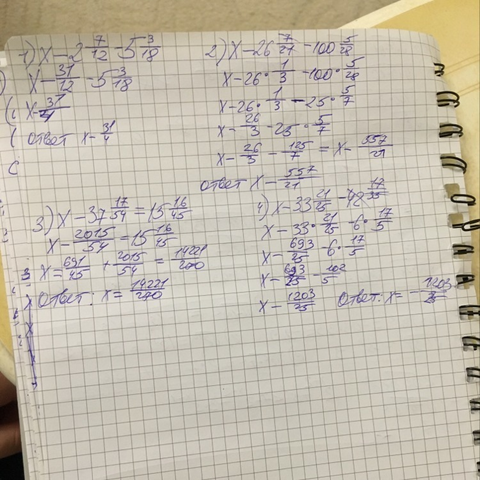 1) x - 2 7/12 - 5 3/18
x - 31/12 - 5 3/18
x - 31/4
ответ x - 31/4
2) x - 26 7/21 - 100 5/28
x - 26 · 1/3 - 100 · 5/28
x - 26 · 1/3 - 25 · 5/7
x - 26/3 - 25 · 5/7
x - 26/3 - 125/7 = x - 557/21
ответ x - 557/21
3) x - 37 17/54 = 15 16/45
x - 2015/54 = 15 16/45
x = 691/45 + 2015/54 = 14221/270
Ответ: x = 14221/270
4) x - 33 21/25 - 48 17/35
x - 33 · 21/25 - 6 · 17/5
x - 693/25 - 6 · 17/5
x - 693/25 - 102/5
x - 1203/25 Ответ: x = - 1203/25